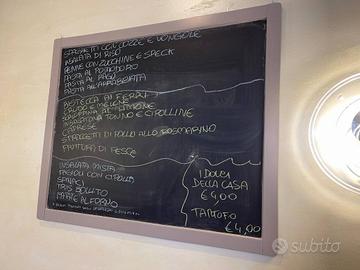 SPAGHETTI CON COZZE E VONGOLE
INSALATA DI RISO
PENNE CON ZUCCHINE E SPECK
PASTA AL POMODORO
PASTA AL RAGÙ
PASTA ALL'ARRABBIATA
BISTECCA AI FERRI
CRUDO E MELONE
SCALOPPINA AL LIMONE
INSALATONA TONNO E CIPOLLINE
CAPRESE
STRACCETTI DI POLLO ALLO ROSMARINO
FRITTURA DI PESCE
INSALATA MISTA
FAGIOLI CON CIPOLLA
SPINACI
TRIS BOLLITO
PATATE AL FORNO
I DOLCI
DELLA CASA
€ 4,00
TARTUFO
€ 4,00
subito